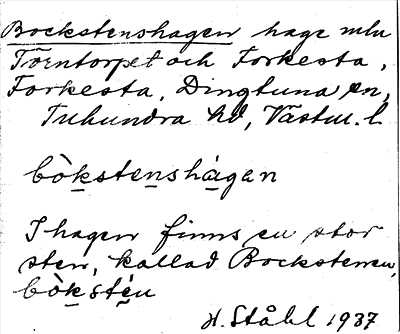 Bockstenshagen hage mln
Torntorpet och Forkesta,
Forkesta, Dingtuna sn,
Tuhundra hd, Västm. l.
bòkstenshàgen
I hagen finns en stor
sten, kallad Bockstenen,
bòkstén
H. Ståhl 1937